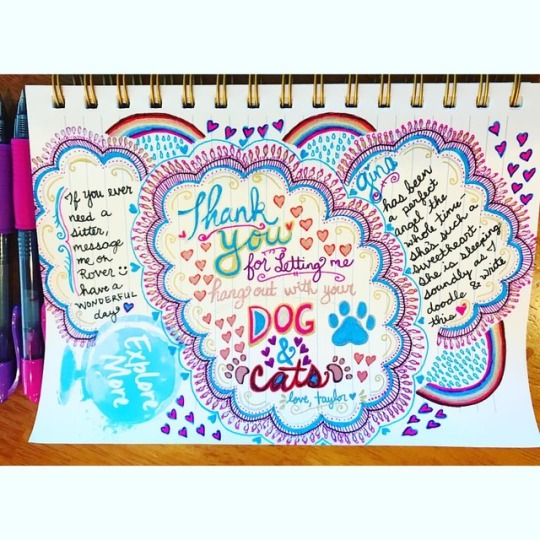 If you ever
need a
sitter,
message
me on
Rover
have a
WONDERFUL
day
Explore
More
Thank
you
for Letting me
hang out with your
DOG
&
Cats
love, taylor
gina
has been
a perfect
angel the
whole time.
She's such a
sweetheart.
She is sleeping
soundly as I
doodle & write
this